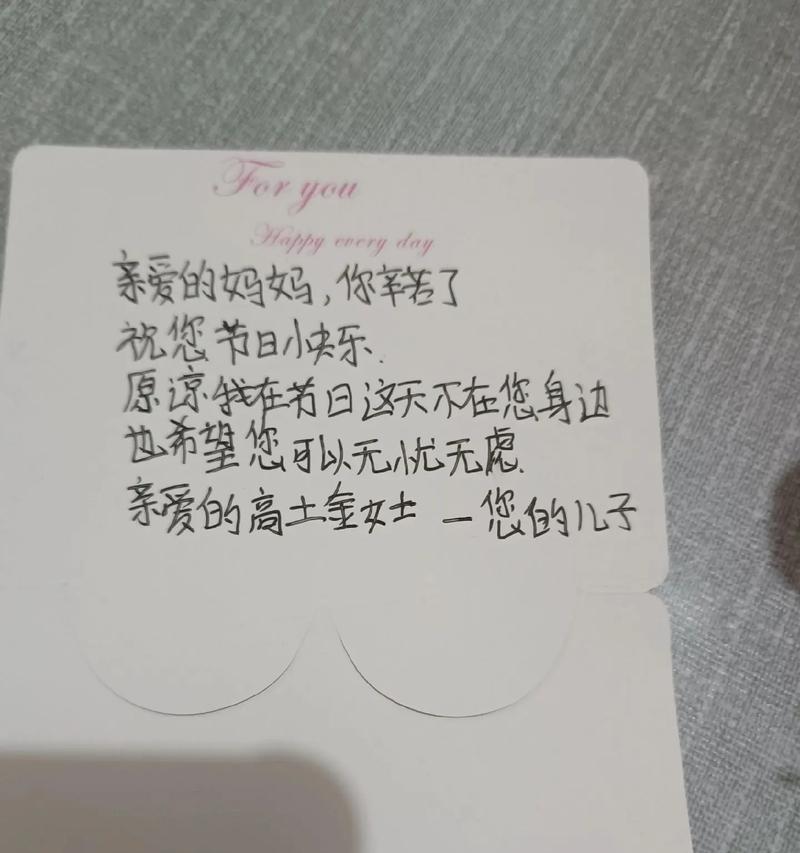 For you
Happy every day
亲爱的妈妈，你辛苦了
祝您节日小快乐.
原谅我在节日这天不在您身边
也希望您可以无忧无虑.
亲爱的高土金女士 — 您的儿子